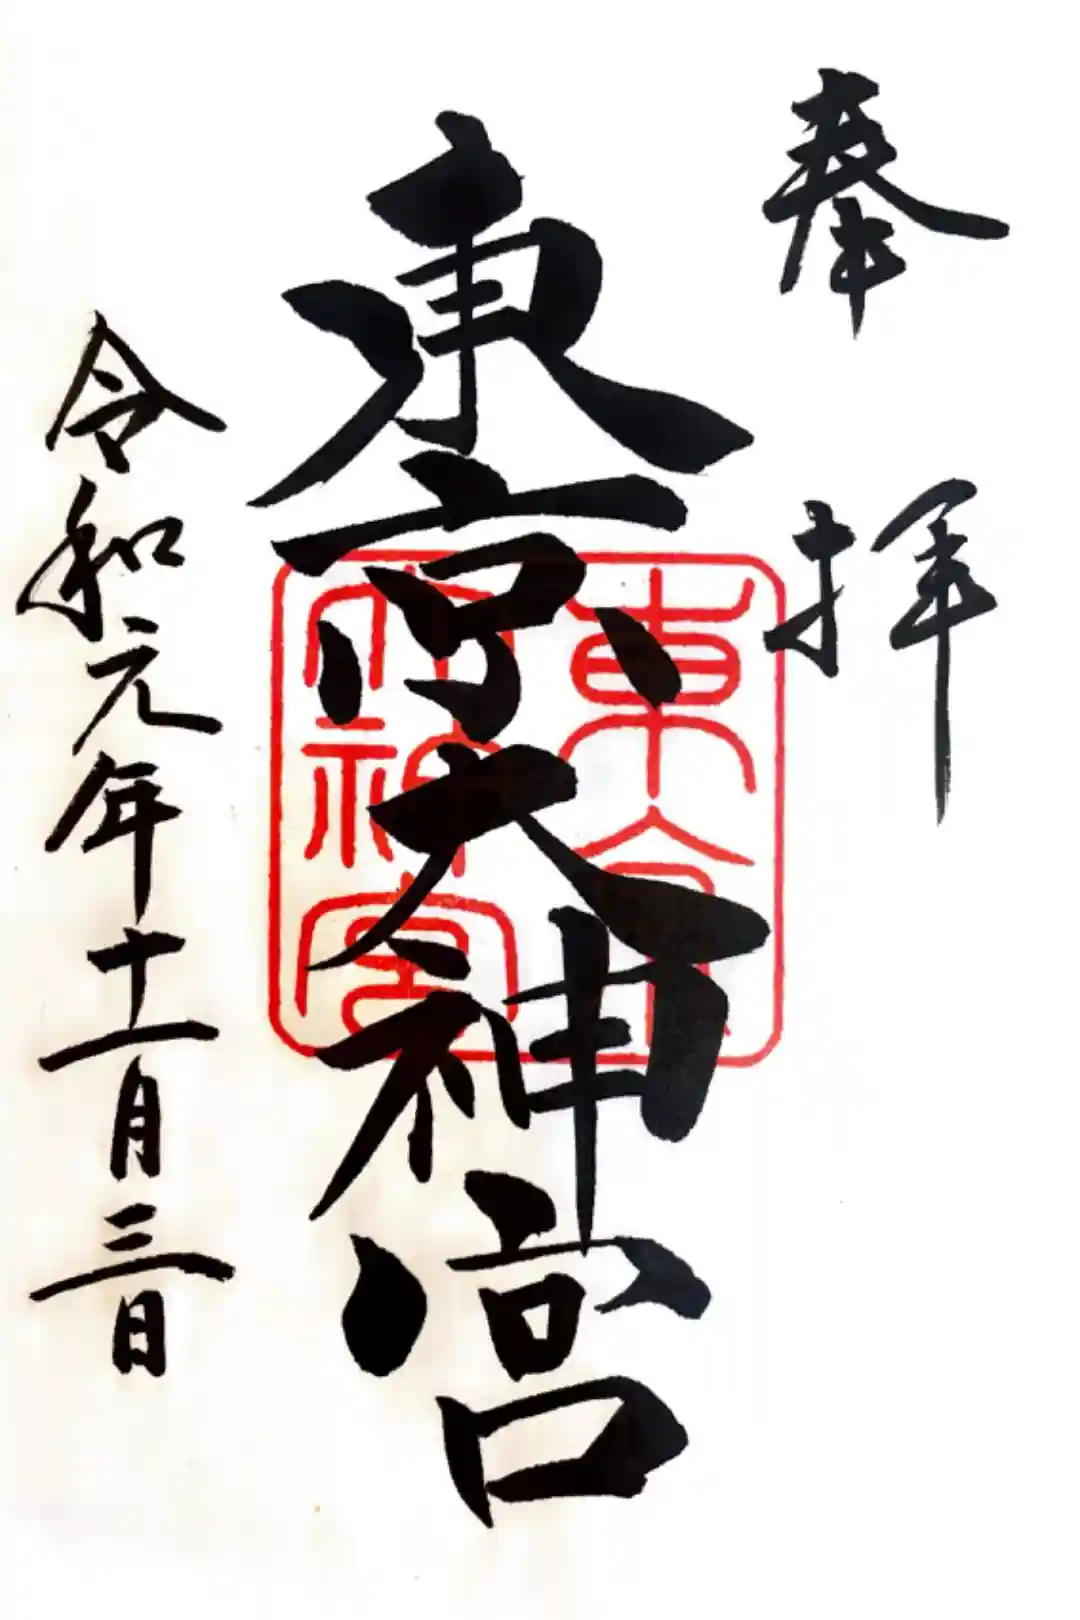 奉拝
東京大神宮
東京大神宮
令和元年十一月三日